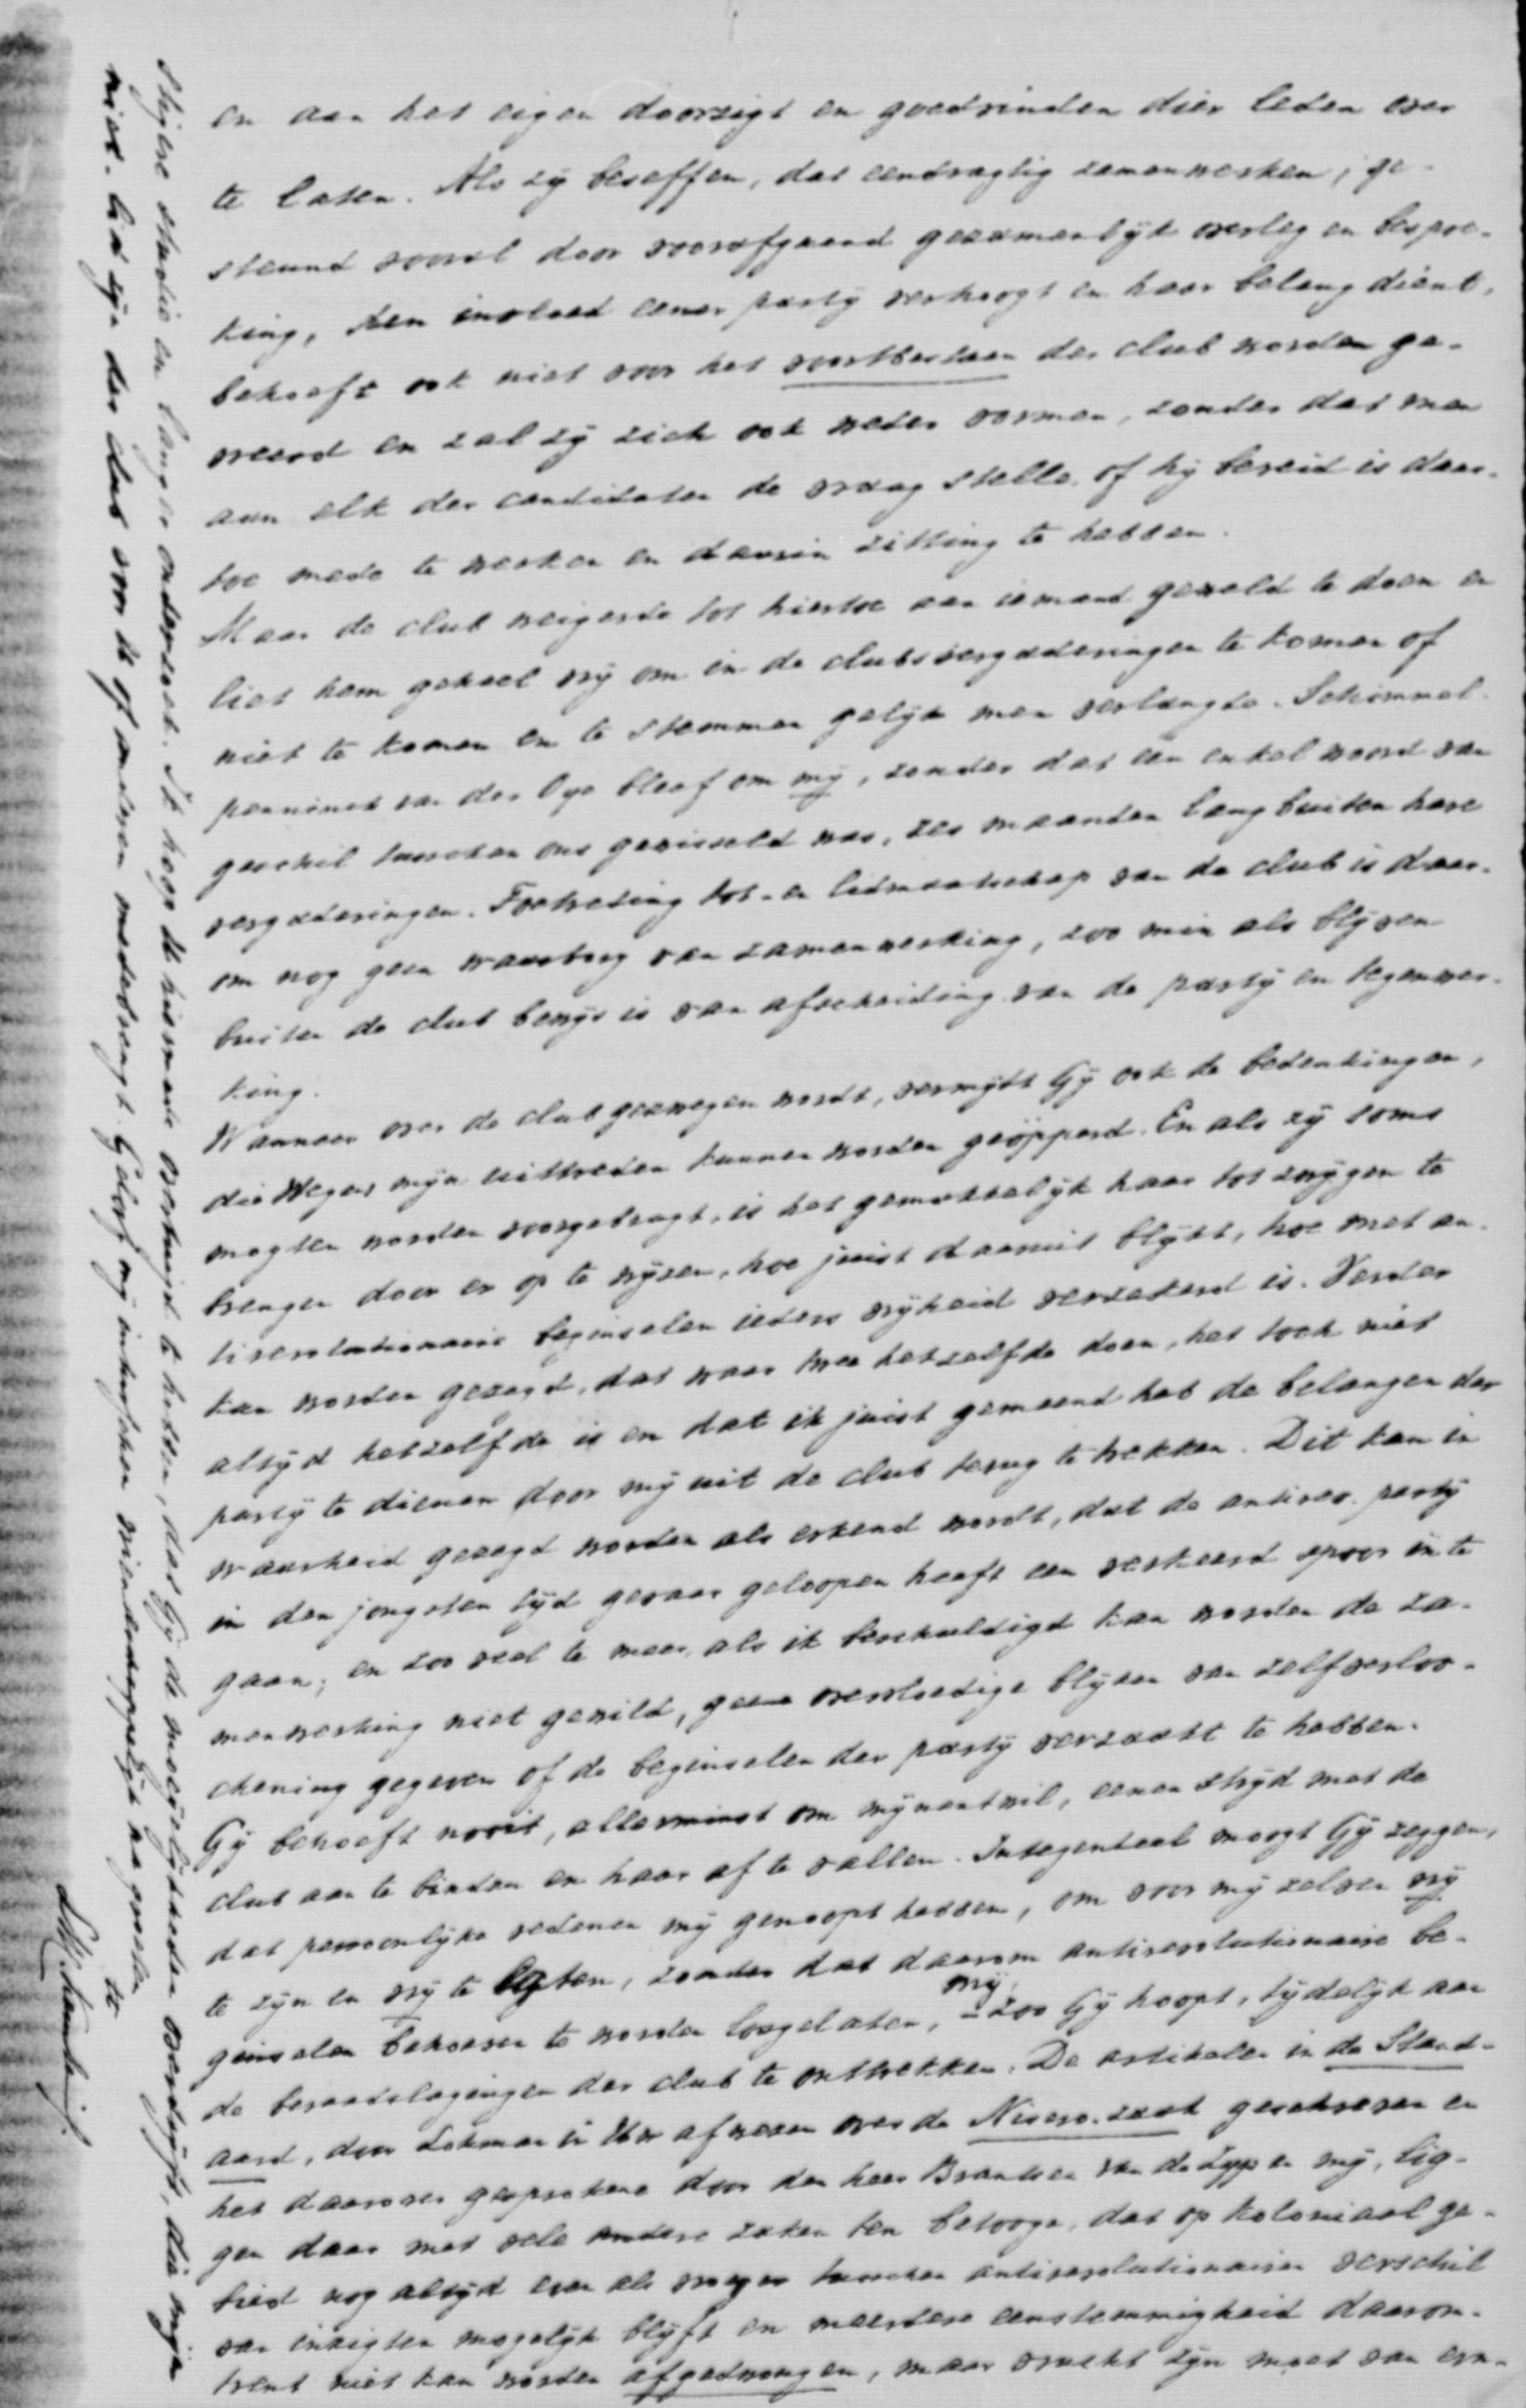 en aan het eigen doorzigt en goedvinden dier leden over
te laten. Als zy beseffen, dat eendragtig zamenwerken, ge-
steund vooral door voorafgaand gezamenlyk overleg en bespre-
king, den invloed eener party verhoogt en haar belang dient,
behoeft ook niet voor het voortbestaan der club worden ge-
vreesd en zal zy zich ook weder vormen, zonder dat men
aan elk der candidaten de vraag stelle, of hy bereid is daar-
toe mede te werken en daarin zitting te hebben.
Maar de club weigerde tot hiertoe aan iemand geweld te doen en
liet hem geheel vry om in de clubsvergaderingen te komen of
niet te komen en te stemmen gelyk men verlangde. Schimmel-
penninck van der Oye bleef om my, zonder dat een enkel woord van
geschil tusschen ons gewisseld was, zes maanden lang buiten hare
vergaderingen. Toetreding tot en lidmaatschap van de club is daar-
om nog geen waarborg van zamenwerking, zoo min als blyven
buiten de club bewys is van afscheiding van de party en tegenwer-
king.
Wanneer over de club gezwegen wordt, vermydt Gy ook de bedenkingen,
die wegens myn uittreden kunnen worden geopperd. En als zy soms
mogten worden voorgedragt, is het gemakkelyk haar tot zwygen te
brengen door er op te wyzen, hoe juist daaruit blykt, hoe met an-
tirevolutionaire beginselen ieders vryheid verzekerd is. Verder
kan worden gezegd, dat waar twee hetzelfde doen, het toch niet
altyd hetzelfde is en dat ik juist gemeend heb de belangen der
party te dienen door my uit de club terug te trekken. Dit kan in
waarheid gezegd worden als erkend wordt, dat de antirev. party
in den jongsten tyd gevaar geloopen heeft een verkeerd spoor in te
gaan; en zoo veel te meer, als ik beschuldigd kan worden de za-
menwerking niet gewild, geene overvloedige blyken van zelfverloo-
chening gegeven of de beginselen der party verzaakt te hebben.
Gy behoeft nooit, allerminst om mynentwil, eenen stryd met de
club aan te binden en haar af te vallen. Integendeel moogt Gy zeggen,
dat persoonlyke redenen my genoopt hebben, om voor my zelven vry
te zyn en vry te laten, zonder dat daarom antirevolutionaire be-
ginselen behoeven te worden losgelaten, my, – zoo Gy hoopt, tydelyk aan
de beraadslagingen der club te onttrekken. De artikelen in de Stand-
aard, door Lohman in Uw afwezen over de Nisero-zaak geschreven en
het daarover gesprokene door den heer Brantsen van de Zyp en my, lig-
gen daar met vele andere zaken ten betooge, dat op koloniaal ge-
bied nog altyd even als vroeger tusschen antirevolutionairen verschil
van inzigten mogelyk blyft en meerdere eenstemmigheid daarom-
trent niet kan worden afgedwongen, maar vrucht zyn moet van ern-
stigere studie en langer onderzoek. Ik hoop U hiermede overtuigd te hebben, dat Gy de moeyelykheden overdryft, die myn
niet-lid zyn der club voor U of anderen medebrengt. Geloof my intusschen vriendschappelyk na groeten
tt
LWCKeuchenius